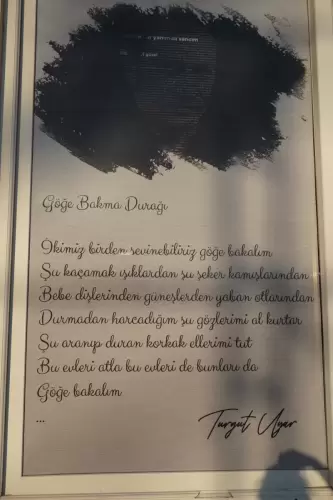 Göğe Bakma Durağı
İkimiz birden sevinebiliriz göğe bakalım
Şu kaçamak ışıklardan şu şeker kamışlarından
Bebe dişlerinden güneşlerden yaban otlarından
Durmadan harcadığım şu gözlerimi al kurtar
Şu aranıp duran korkak ellerimi tut
Bu evleri atla bu evleri de bunları da
Göğe bakalım
...
Turgut Uyar